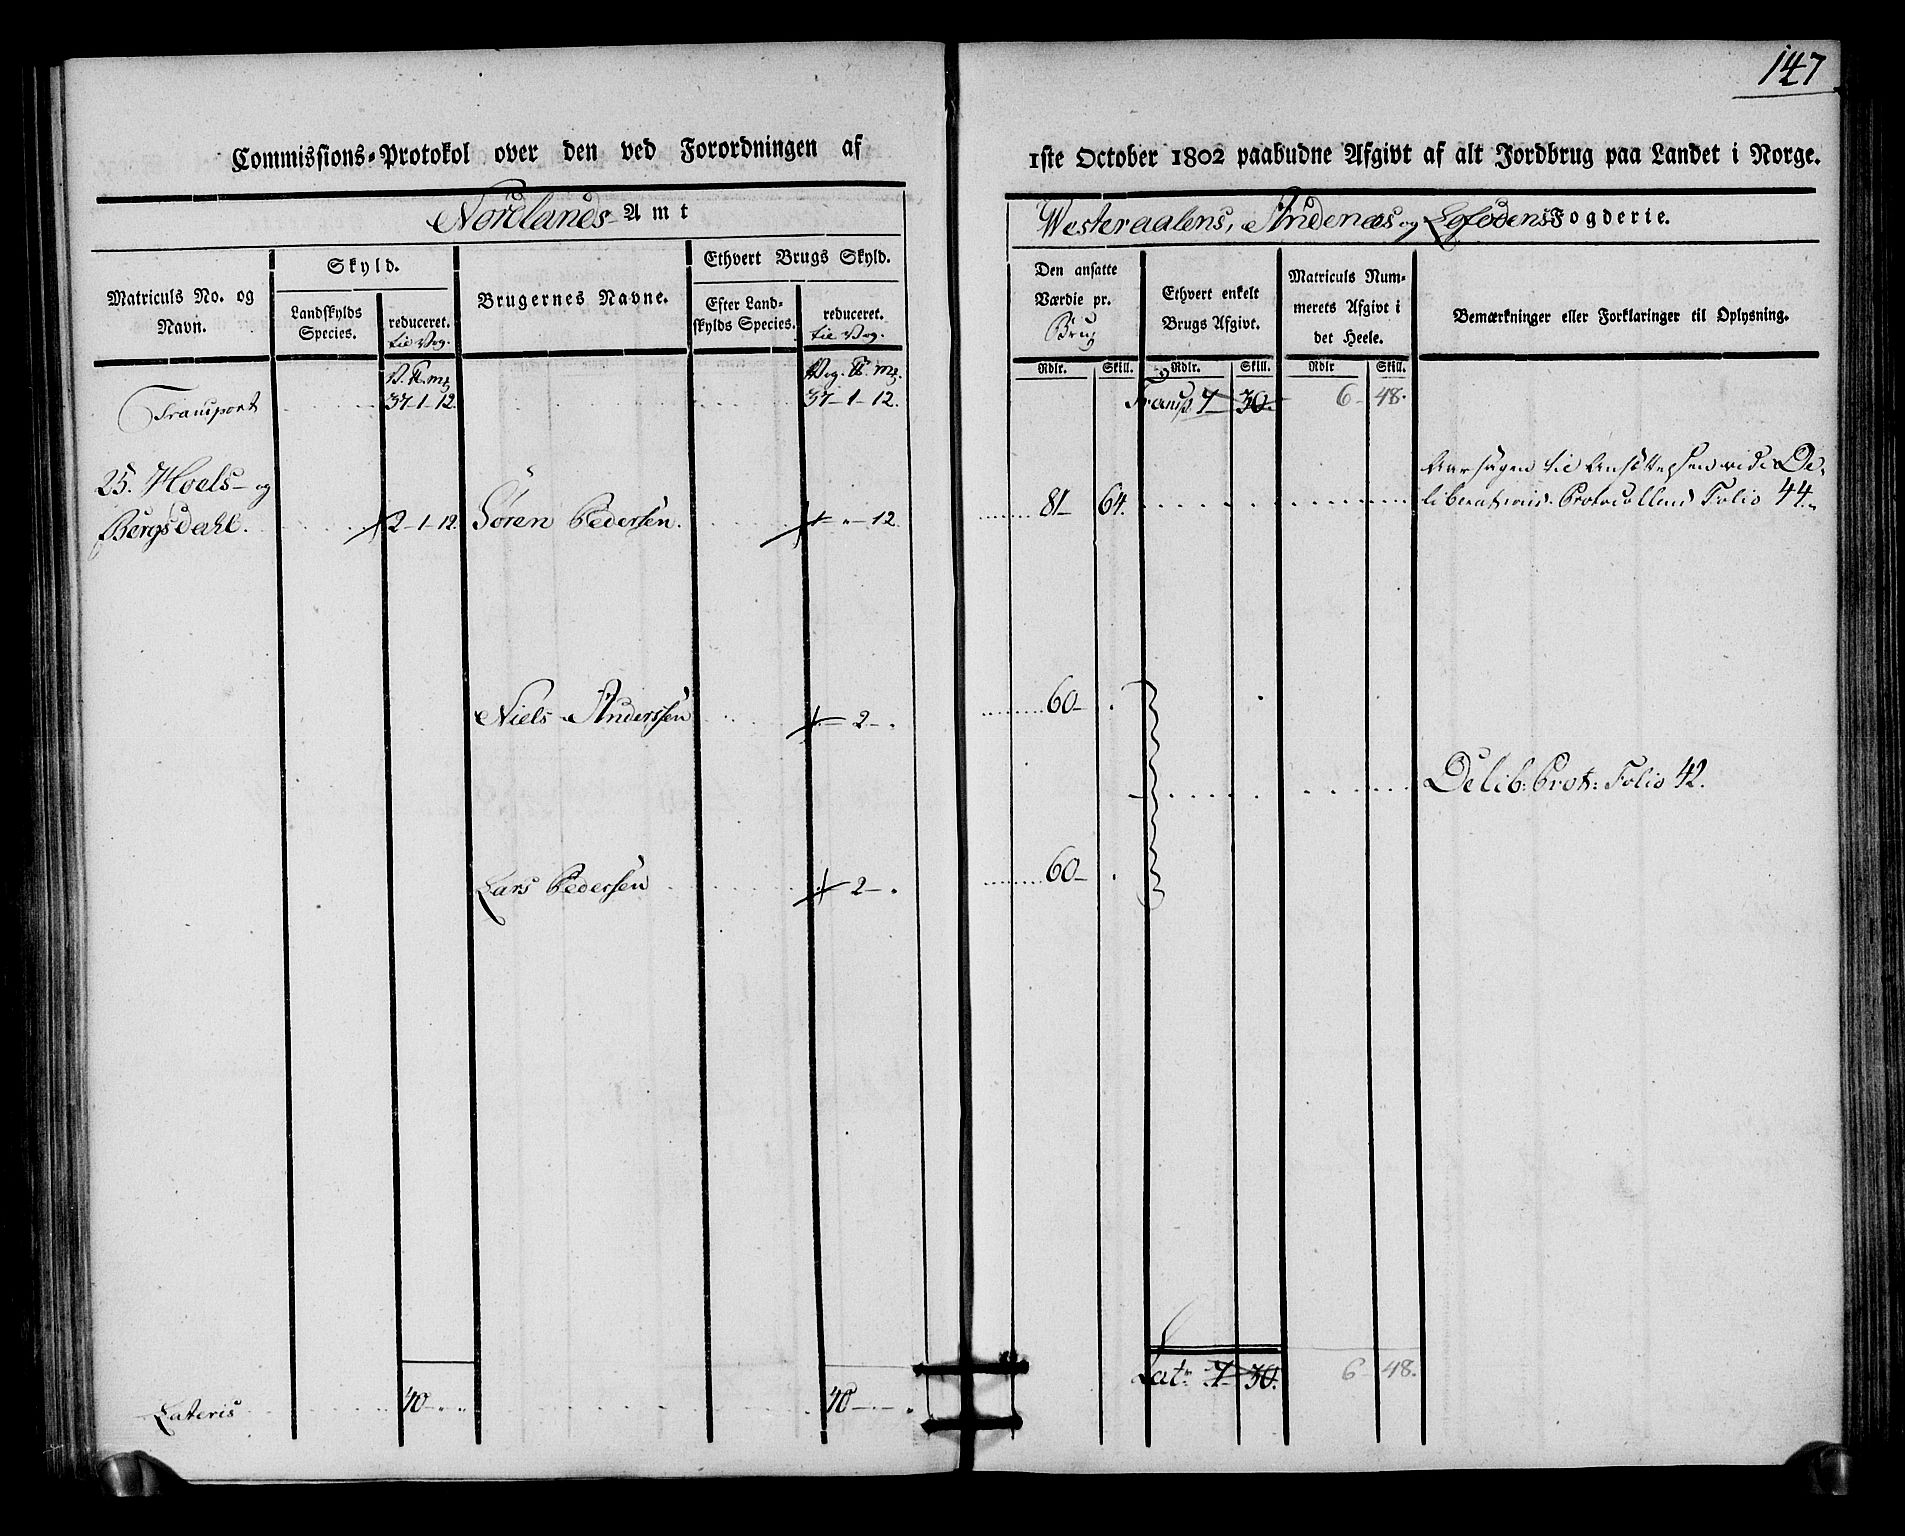 147
Commissions-Protokol over den ved Forordningen af 1ste October 1802 paabudne Afgivt af alt Jordbrug paa Landet i Norge.
Nordlands Amt
Westeraalens, Andenæs og Lofodens Fogderie.
Matriculs No. og Navn.
Skyld.
Landskylds Species.
reduceret. til Vog.
Brugernes Navne.
Ethvert Brugs Skyld.
Efter Landskylds Species.
reduceret. til Vog.
Den ansatte Værdie pr. Brug
Ethvert enkelt Brugs Afgivt.
Matriculs Nummerets Afgivt i det Heele.
Bemærkninger eller Forklaringer til Oplysning.
V. ℔. mk. Vog. ℔. mk. Rdlr. Skill. Rdlr. Skill. Rdlr Skill.
Transport 37-1-12. 37-1-12. Transp. 7- 30. 6- 48.
25. Hoels- og
Bergsdahl. 2-1-12. Søren Pedersen. 1-"-12. 81- 64.
Aarsagen til Ansættelsen vide De-
liberations Protocollens Folio 44.
Niels Anderssen - 2 - . 60- .
Delib: Prot: Folio 42.
Lars Pedersen - 2 - . 60- .
Lateris 40-"-" 40-"-" Lat. 7- 30. 6- 48.